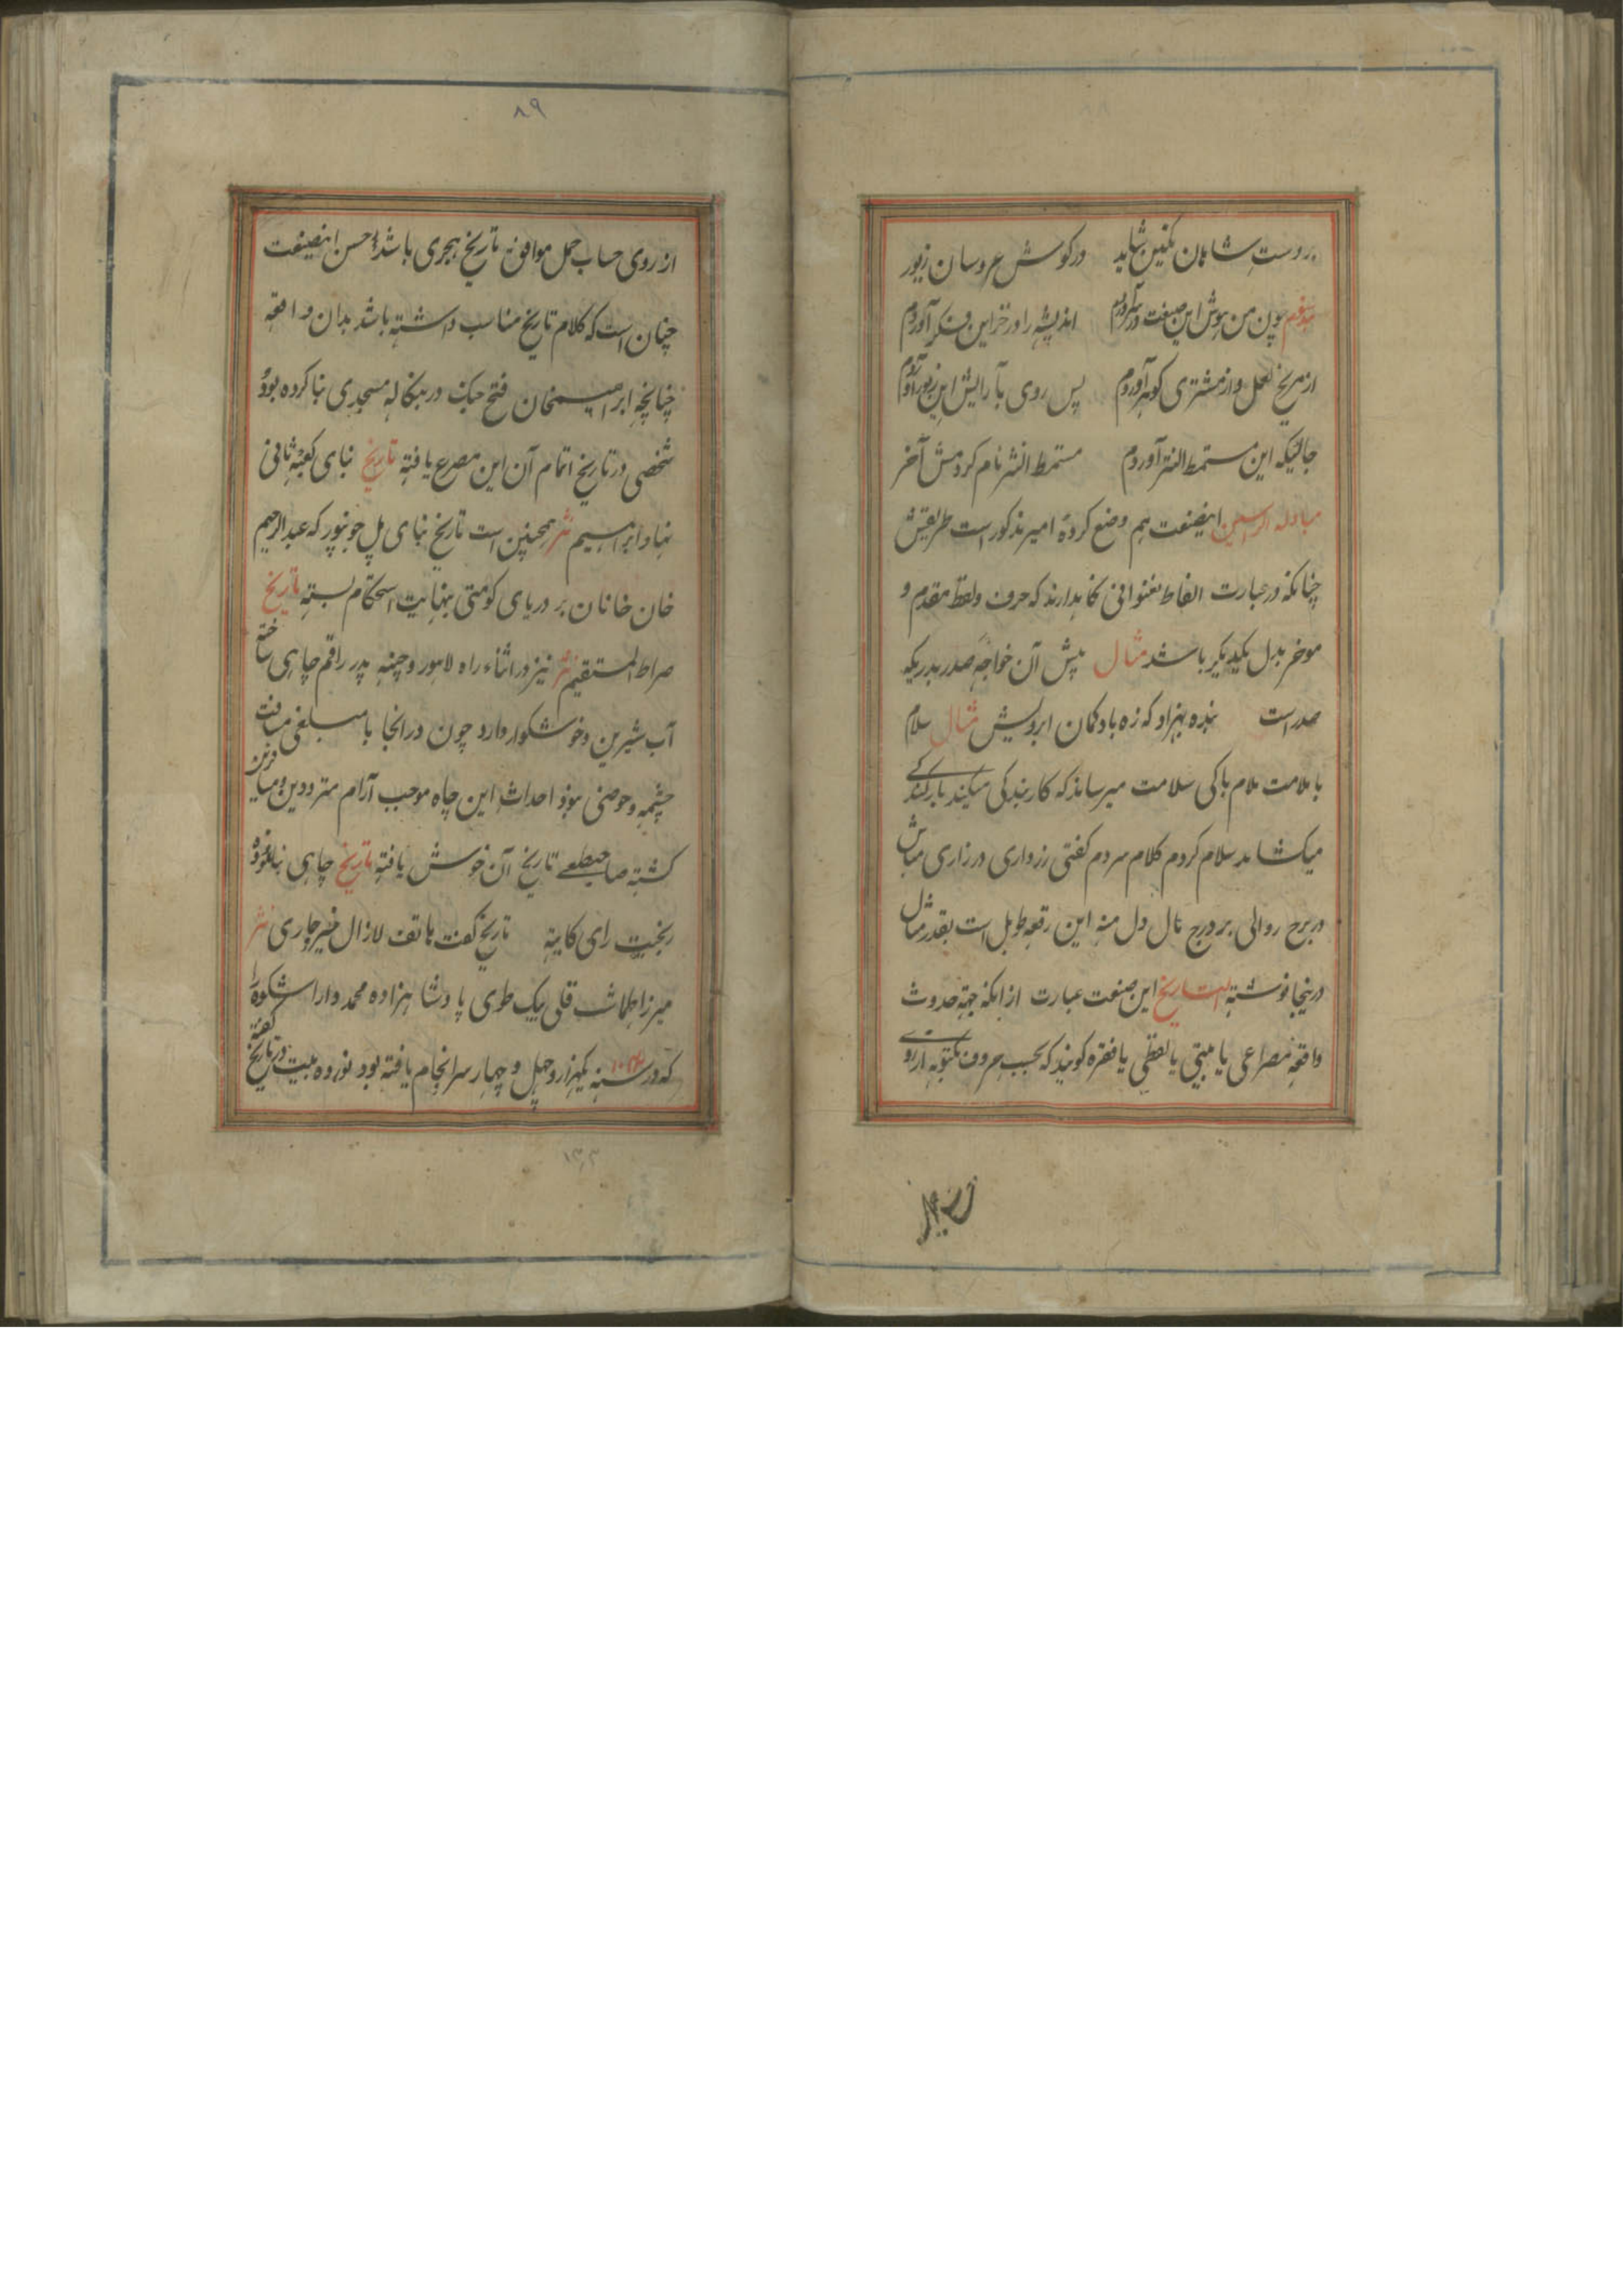 در دست شاهان نگین شاید در گوش عروسان زیور
چون من بهوش این صنعت در آوردم اندیشه را در خزاین فکر آوردم
از مریخ لعل و از مشتری گوهر آوردم پس روی بآرایش این زیور آوردم
حالیکه این مستمط النثر آوردم مستمط النثر نام کردمش آخر
مبادله الراسین اینصنعت هم وضع کرده امیر مذکور است طریقش
چنانکه در عبارت الفاظ بعنوانی نگاهدارند که حرف و لفظ مقدم و
موخر بدل یکدیگر باشد مثال پیش آن خواجه صدر بدریکه
صدر است بنده بهزاد که زه باد کمان ابرویش مثال سلام
با ملامت ملام باکی سلامت میرساند که کار بندکی میکند بار کندکی
میکشاند سلام کردم کلام سردم کفتی رزواری در زاری مباش
در برج روالی بر درج مال دل منه این رقعه طویل است بقدر مثال
درینجا نوشته التاریخ این صنعت عبارت از انکه جهة حدوث
واقعه مصراعی یا بیتی یا لفظی یا فقره کویند که بحسب حروف مکتوبه از روی
۸۹
از روی حساب جمل موافق تاریخ هجری باشد و احسن اینصنعت
چنان است که کلام تاریخ مناسب داشته باشد بدان واقعه
چنانچه ابراهیمخان فتح جنک در بنکاله مسجدی بنا کرده بود
شخصی در تاریخ اتمام آن این مصرع یافته تاریخ بنای کعبه ثانی
نهاد ابراهیم نثر همچنین است تاریخ بنای پل جونپور که عبدالرحیم
خان خانان بر دریای کومتی بنهایت استحکام بسته تاریخ
صراط المستقیم نثر نیز در اثناء راه لاهور و پدر راقم چاهی ساخته
آب شیرین و خوشکوار دارد چون در انجا با مبلغی مسافت
چشمه و حوضی نبود احداث این چاه موجب آرام مترددین و مسافرین
کشته صاحبطبعی تاریخ آن خوش یافته تاریخ چاهی بنا نموده
رای تاریخ کفت هاتف لازال خیر جاری نثر
میرزا طهماسب قلی بیک طوی پادشاهزاده محمد داراشکوه را
که در سنه ۱۰۴۴ یکهزار و چهل و چهار سرانجام یافته بود نوزده بیت در تاریخ کفته